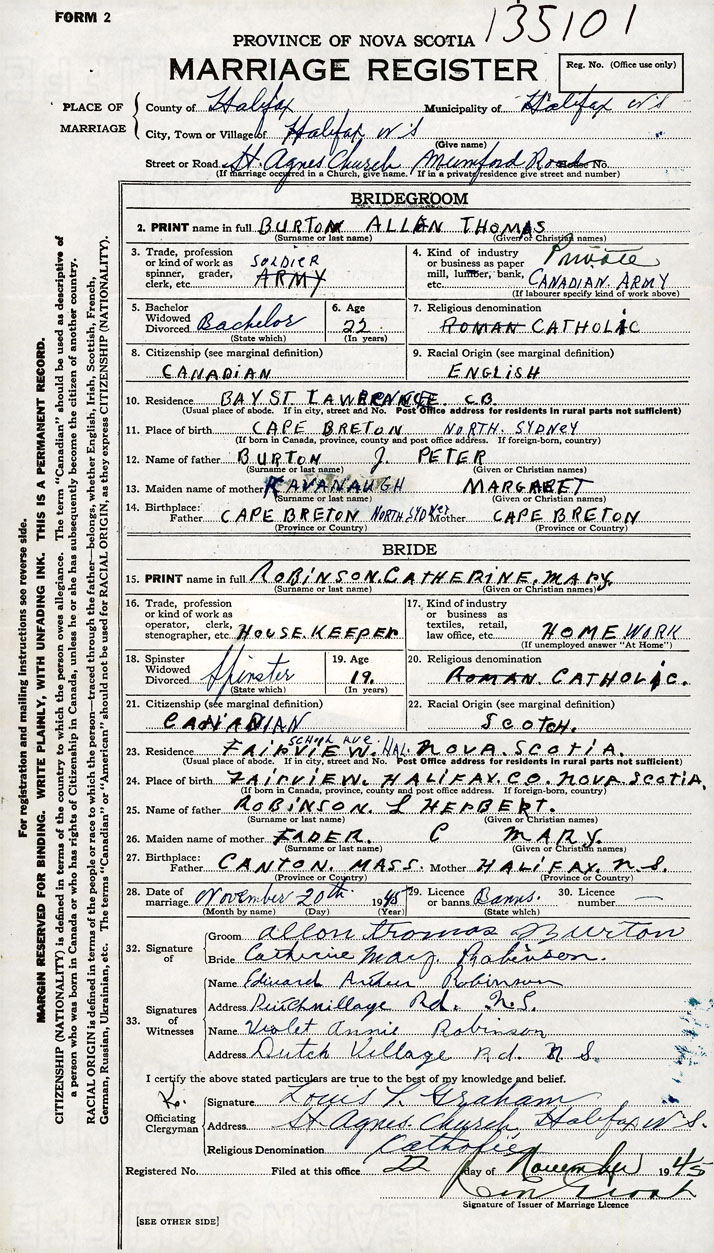 FORM 2
135101
PROVINCE OF NOVA SCOTIA
MARRIAGE REGISTER
Reg. No. (Office use only)
PLACE OF MARRIAGE
County of Halifax Municipality of Halifax N S
City, Town or Village of Halifax N S
(Give name)
Street or Road St. Agnes Church Mumford Road House No.
(If marriage occurred in a Church, give name. If in a private residence give street and number)
BRIDEGROOM
2. PRINT name in full BURTON ALLAN THOMAS
(Surname or last name) (Given or Christian names)
3. Trade, profession or kind of work as spinner, grader, clerk, etc. SOLDIER ARMY
4. Kind of industry or business as paper mill, lumber, bank, etc. Private CANADIAN ARMY
(If labourer specify kind of work above)
5. Bachelor Widowed Divorced Bachelor
(State which)
6. Age 22
(In years)
7. Religious denomination ROMAN CATHOLIC
8. Citizenship (see marginal definition)
CANADIAN
9. Racial Origin (see marginal definition)
ENGLISH
10. Residence BAY ST LAWRENCE. C.B.
(Usual place of abode. If in city, street and No. Post Office address for residents in rural parts not sufficient)
11. Place of birth CAPE BRETON NORTH SYDNEY
(If born in Canada, province, county and post office address. If foreign-born, country)
12. Name of father BURTON J. PETER
(Surname or last name) (Given or Christian names)
13. Maiden name of mother KAVANAUGH MARGARET
(Surname or last name) (Given or Christian names)
14. Birthplace: Father CAPE BRETON NORTH SYDNEY Mother CAPE BRETON
(Province or Country) (Province or Country)
BRIDE
15. PRINT name in full ROBINSON. CATHERINE. MARY
(Surname or last name) (Given or Christian names)
16. Trade, profession or kind of work as operator, clerk, stenographer, etc. HOUSE. KEEPER
17. Kind of industry or business as textiles, retail, law office, etc. HOME WORK
(If unemployed answer "At Home")
18. Spinster Widowed Divorced Spinster
(State which)
19. Age 19.
(In years)
20. Religious denomination
ROMAN. CATHOLIC.
21. Citizenship (see marginal definition)
CANADIAN
22. Racial Origin (see marginal definition)
SCOTCH.
23. Residence FAIRVIEW. SCHOOL AVE. HAL. NOVA. SCOTIA.
(Usual place of abode. If in city, street and No. Post Office address for residents in rural parts not sufficient)
24. Place of birth FAIRVIEW. HALIFAX. CO. NOVA SCOTIA.
(If born in Canada, province, county and post office address. If foreign-born, country)
25. Name of father ROBINSON. L HERBERT.
(Surname or last name) (Given or Christian names)
26. Maiden name of mother FADER. C MARY.
(Surname or last name) (Given or Christian names)
27. Birthplace: Father CANTON. MASS. Mother HALIFAX. N.S.
(Province or Country) (Province or Country)
28. Date of marriage November 20th 1945
(Month by name) (Day) (Year)
29. Licence or banns Banns.
(State which)
30. Licence number —
32. Signature of
Groom allon thomas Burton
Bride Catherine Mary. Robinson.
33. Signatures of Witnesses
Name Edward Arthur Robinson
Address Dutchvillage Rd. N.S.
Name Violet Annie Robinson
Address Dutch Village Rd. N S.
I certify the above stated particulars are true to the best of my knowledge and belief.
Officiating Clergyman
Signature Louis L. Graham
Address St Agnes. Church, Halifax N S.
Religious Denomination Catholic
Registered No. Filed at this office 22 day of November 1945
Signature of Issuer of Marriage Licence
[SEE OTHER SIDE]
For registration and mailing instructions see reverse side.
MARGIN RESERVED FOR BINDING. WRITE PLAINLY, WITH UNFADING INK. THIS IS A PERMANENT RECORD.
CITIZENSHIP (NATIONALITY) is defined in terms of the country to which the person owes allegiance. The term "Canadian" should be used as descriptive of
a person who was born in Canada or who has rights of Citizenship in Canada, unless he or she has subsequently become the citizen of another country.
RACIAL ORIGIN is defined in terms of the people or race to which the person—traced through the father—belongs, whether English, Irish, Scottish, French,
German, Russian, Ukrainian, etc. The terms "Canadian" or "American" should not be used for RACIAL ORIGIN, as they express CITIZENSHIP (NATIONALITY).